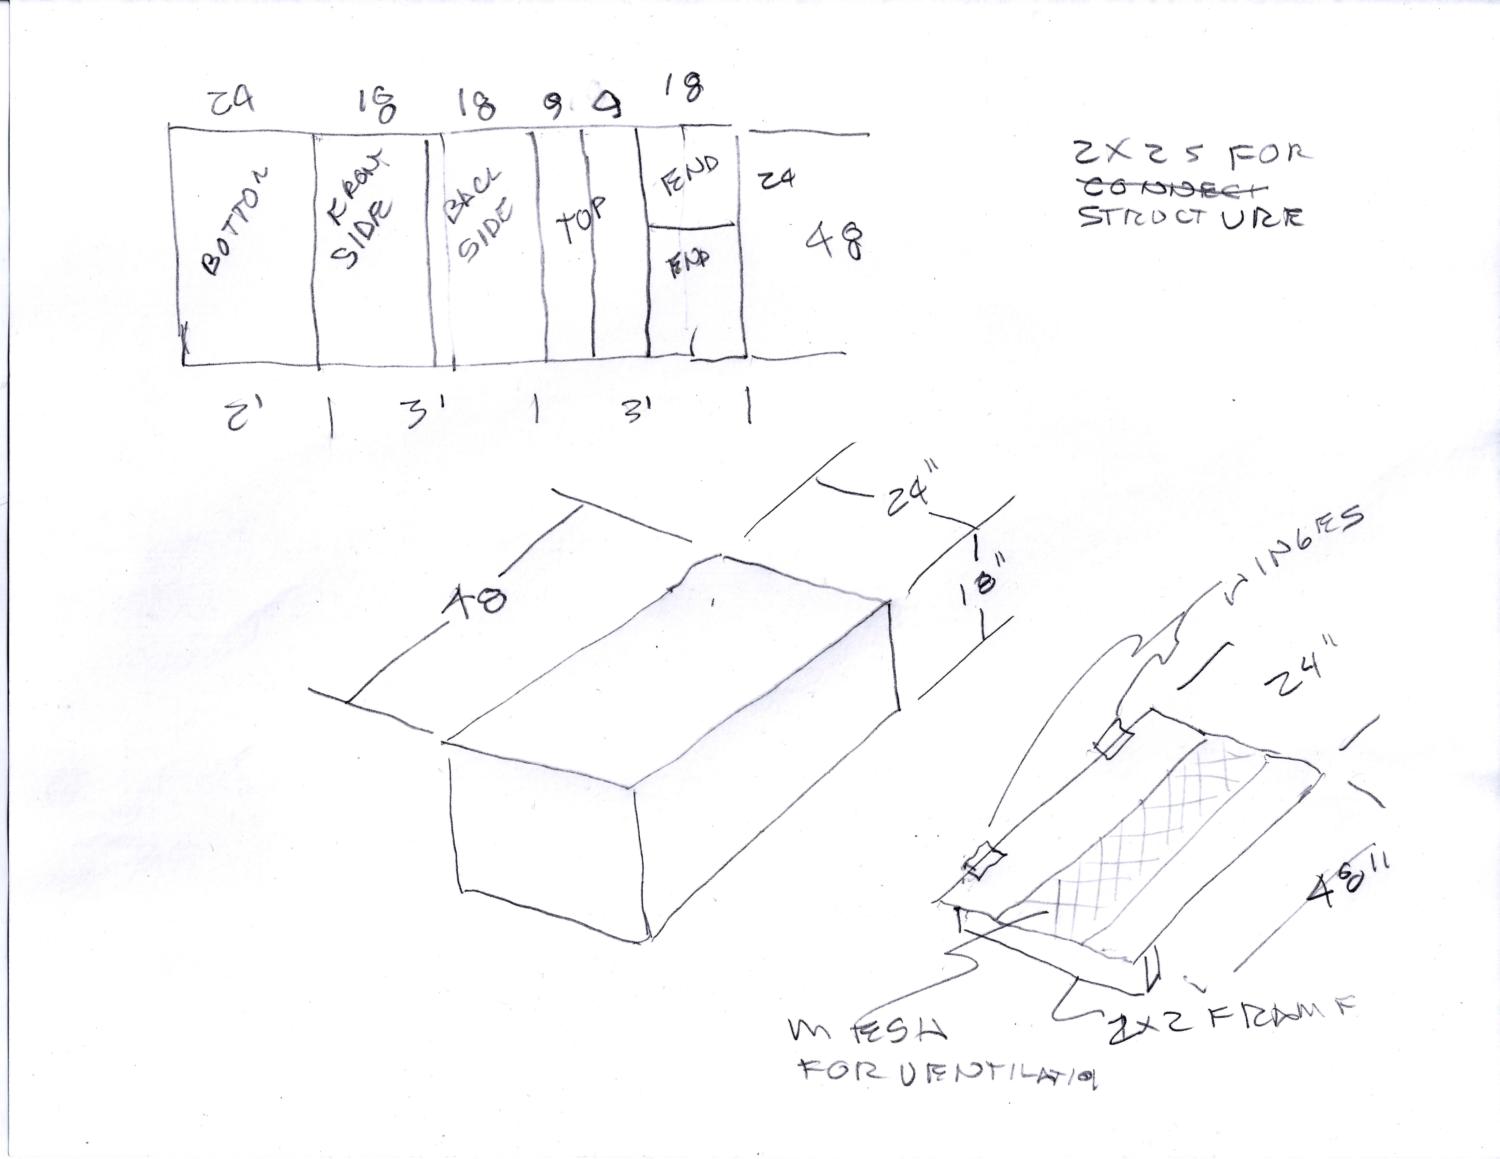 24 18 18 9 9 18
BOTTOM
FRONT
SIDE
BACK
SIDE
TOP
END
END
24
48
2' 3' 3'
2X2S FOR
CONNECT
STRUCTURE
48
24"
18"
HINGES
24"
48"
MESH
FOR VENTILATION
2X2 FRAME